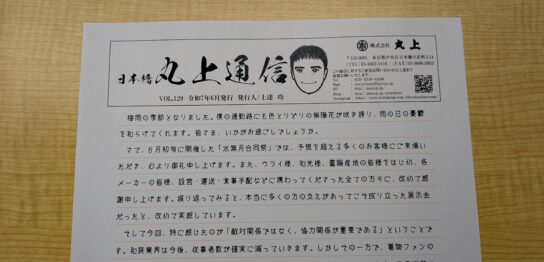 日本橋 丸上通信
VOL.129 令和7年6月発行 発行人/上達 功
株式会社 丸上
梅雨の季節となりました。僕の通勤路にも色とりどりの紫陽花が咲き誇り、雨の日の憂鬱
を和らげてくれます。皆さま、いかがお過ごしでしょうか。
さて、6月初旬に開催した「水無月合同祭」では、予想を超える多くのお客様にご来場い
ただき、心より御礼申し上げます。また、ウライ様、和光様、菱脇産地の皆様をはじめ、各
メーカーの皆様、設営・運送・食事手配などに携わってくださった全ての方々に、改めて感
謝申し上げます。振り返ってみると、本当に多くの方の支えがあってこそ成り立った展示会
だったと、改めて実感しています。
そして今回、特に感じたのが「敵対関係ではなく、協力関係が重要である」ということで
す。和装業界は今後、従事者数が確実に減っていきます。しかしその一方で、着物ファンの